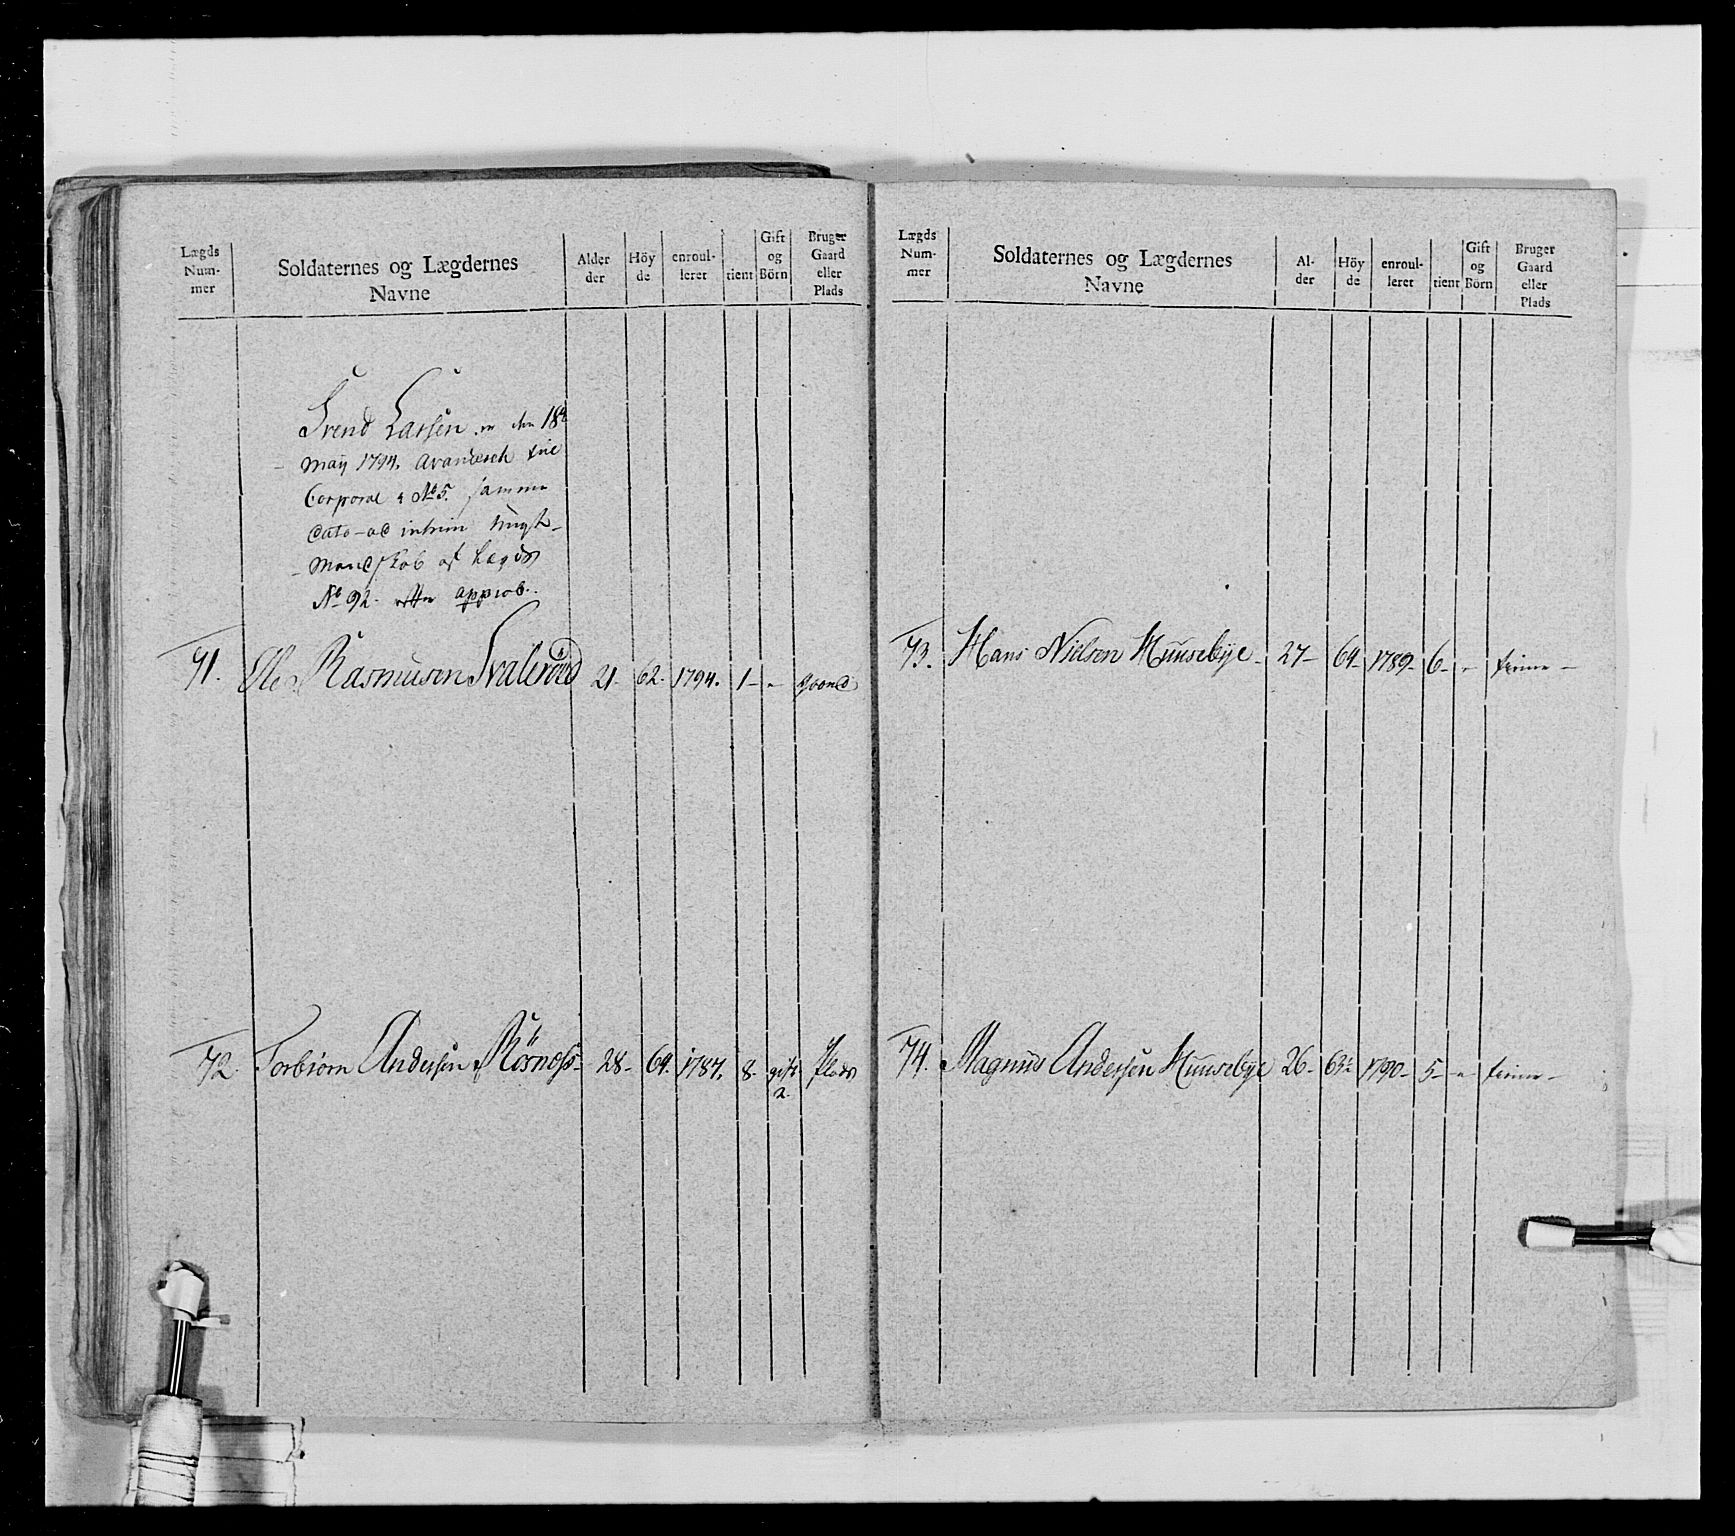 Lægds Nummer | Soldaternes og Lægdernes Navne | Alder der | Höyde | enroulleret | tient | Gift og Börn | Bruger Gaard eller Plads
Svend Larsen er den 18de
May 1794. avanceret til
Corporal i No 5. samme
dato ad intrim
Mandskab af Lægds
No 92. efter approb.
71. Ole Rasmusen Svaleröed 21- 62. 1794. 1- - gaard
72. Torbiörn Andersen Rösnæss- 28- 64. 1787. 8- gift 2. Plads
Lægds Nummer | Soldaternes og Lægdernes Navne | Alder | Höyde | enroulleret | tient | Gift og Börn | Bruger Gaard eller Plads
73. Hans Nielsen Huusebye- 27- 64- 1789- 6- - tiener-
74. Magnus Andersen Huusebye 26- 63½ 1790- 5- - tiener-